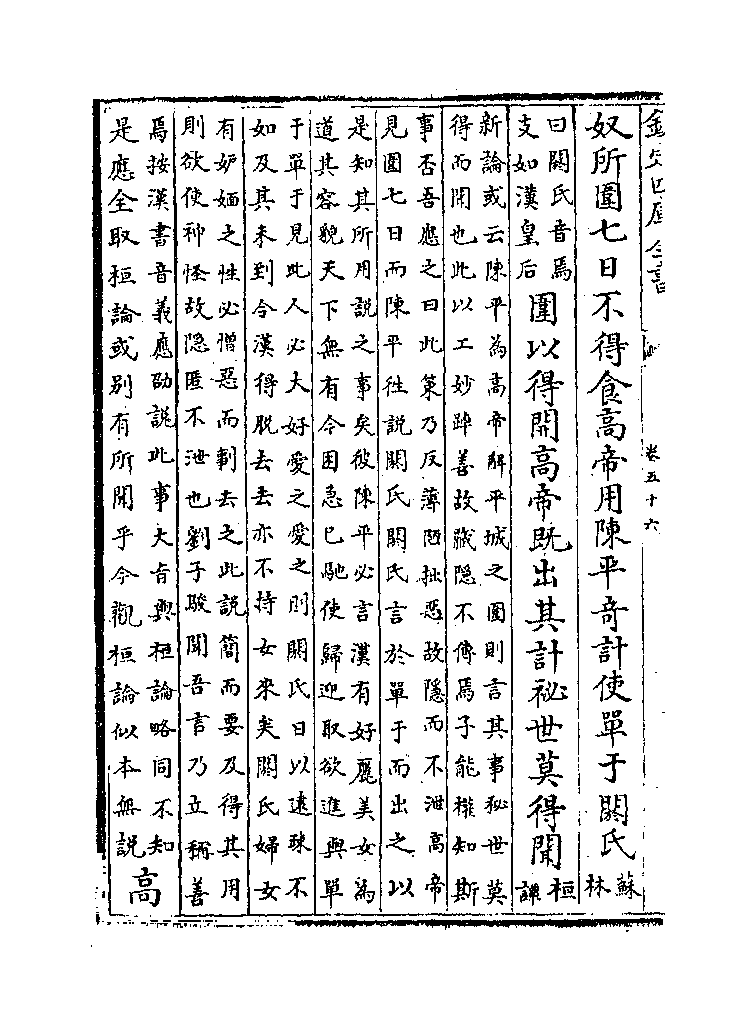 欽定四庫全書
卷五十六
奴所圍七日不得食高帝用陳平竒計使單于閼氏蘇林
曰閼氏音焉支如漢皇后圍以得開高帝既出其計祕世莫得聞桓譚
新論或云陳平為高帝解平城之圍則言其事秘世莫
得而聞也此以工妙踔善故藏隱不傳焉子能權知斯
事否吾應之曰此策乃反薄陋拙惡故隱而不泄高帝
見圍七日而陳平徃說閼氏閼氏言於單于而出之以
是知其所用說之事矣彼陳平必言漢有好麗美女為
道其容貌天下無有今困急已馳使歸迎取欲進與單
于單于見此人必大好愛之愛之則閼氏日以遠踈不
如及其未到令漢得脱去去亦不持女來矣閼氏婦女
有妒媔之性必憎惡而剚去之此說簡而要及得其用
則欲使神怪故隐匿不泄也劉子駿聞吾言乃立稱善
焉按漢書音義應劭說此事大㫖與桓論略同不知
是應全取桓論或别有所聞乎今觀桓論似本無說高